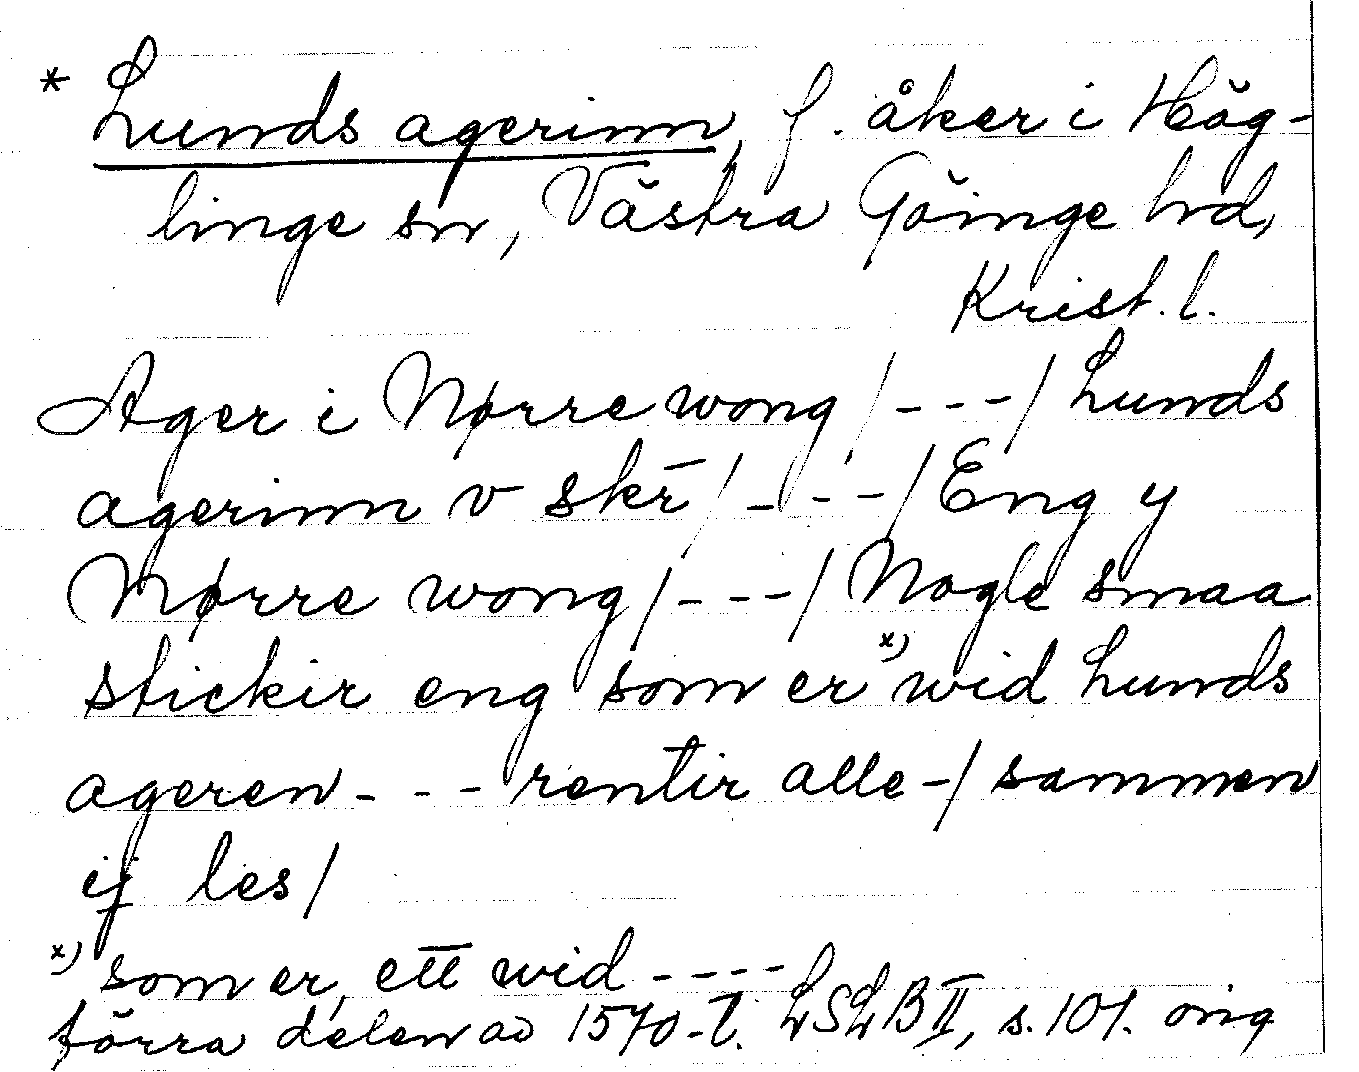 * Lunds agerinn, f. åker i Hög-
linge sn, Västra Göinge hd,
Krist. l.
Ager i Nørre wong /---/ Lunds
agerinn v skr̄ /---/ Eng y
Nørre wong /---/ Nogle smaa
stickir eng som er x) wid Lunds
ageren --- rentir alle -/ sammen
ij les /
x) som er, ett wid ----
förra delen av 1570-t. LSLB II, s. 101. orig